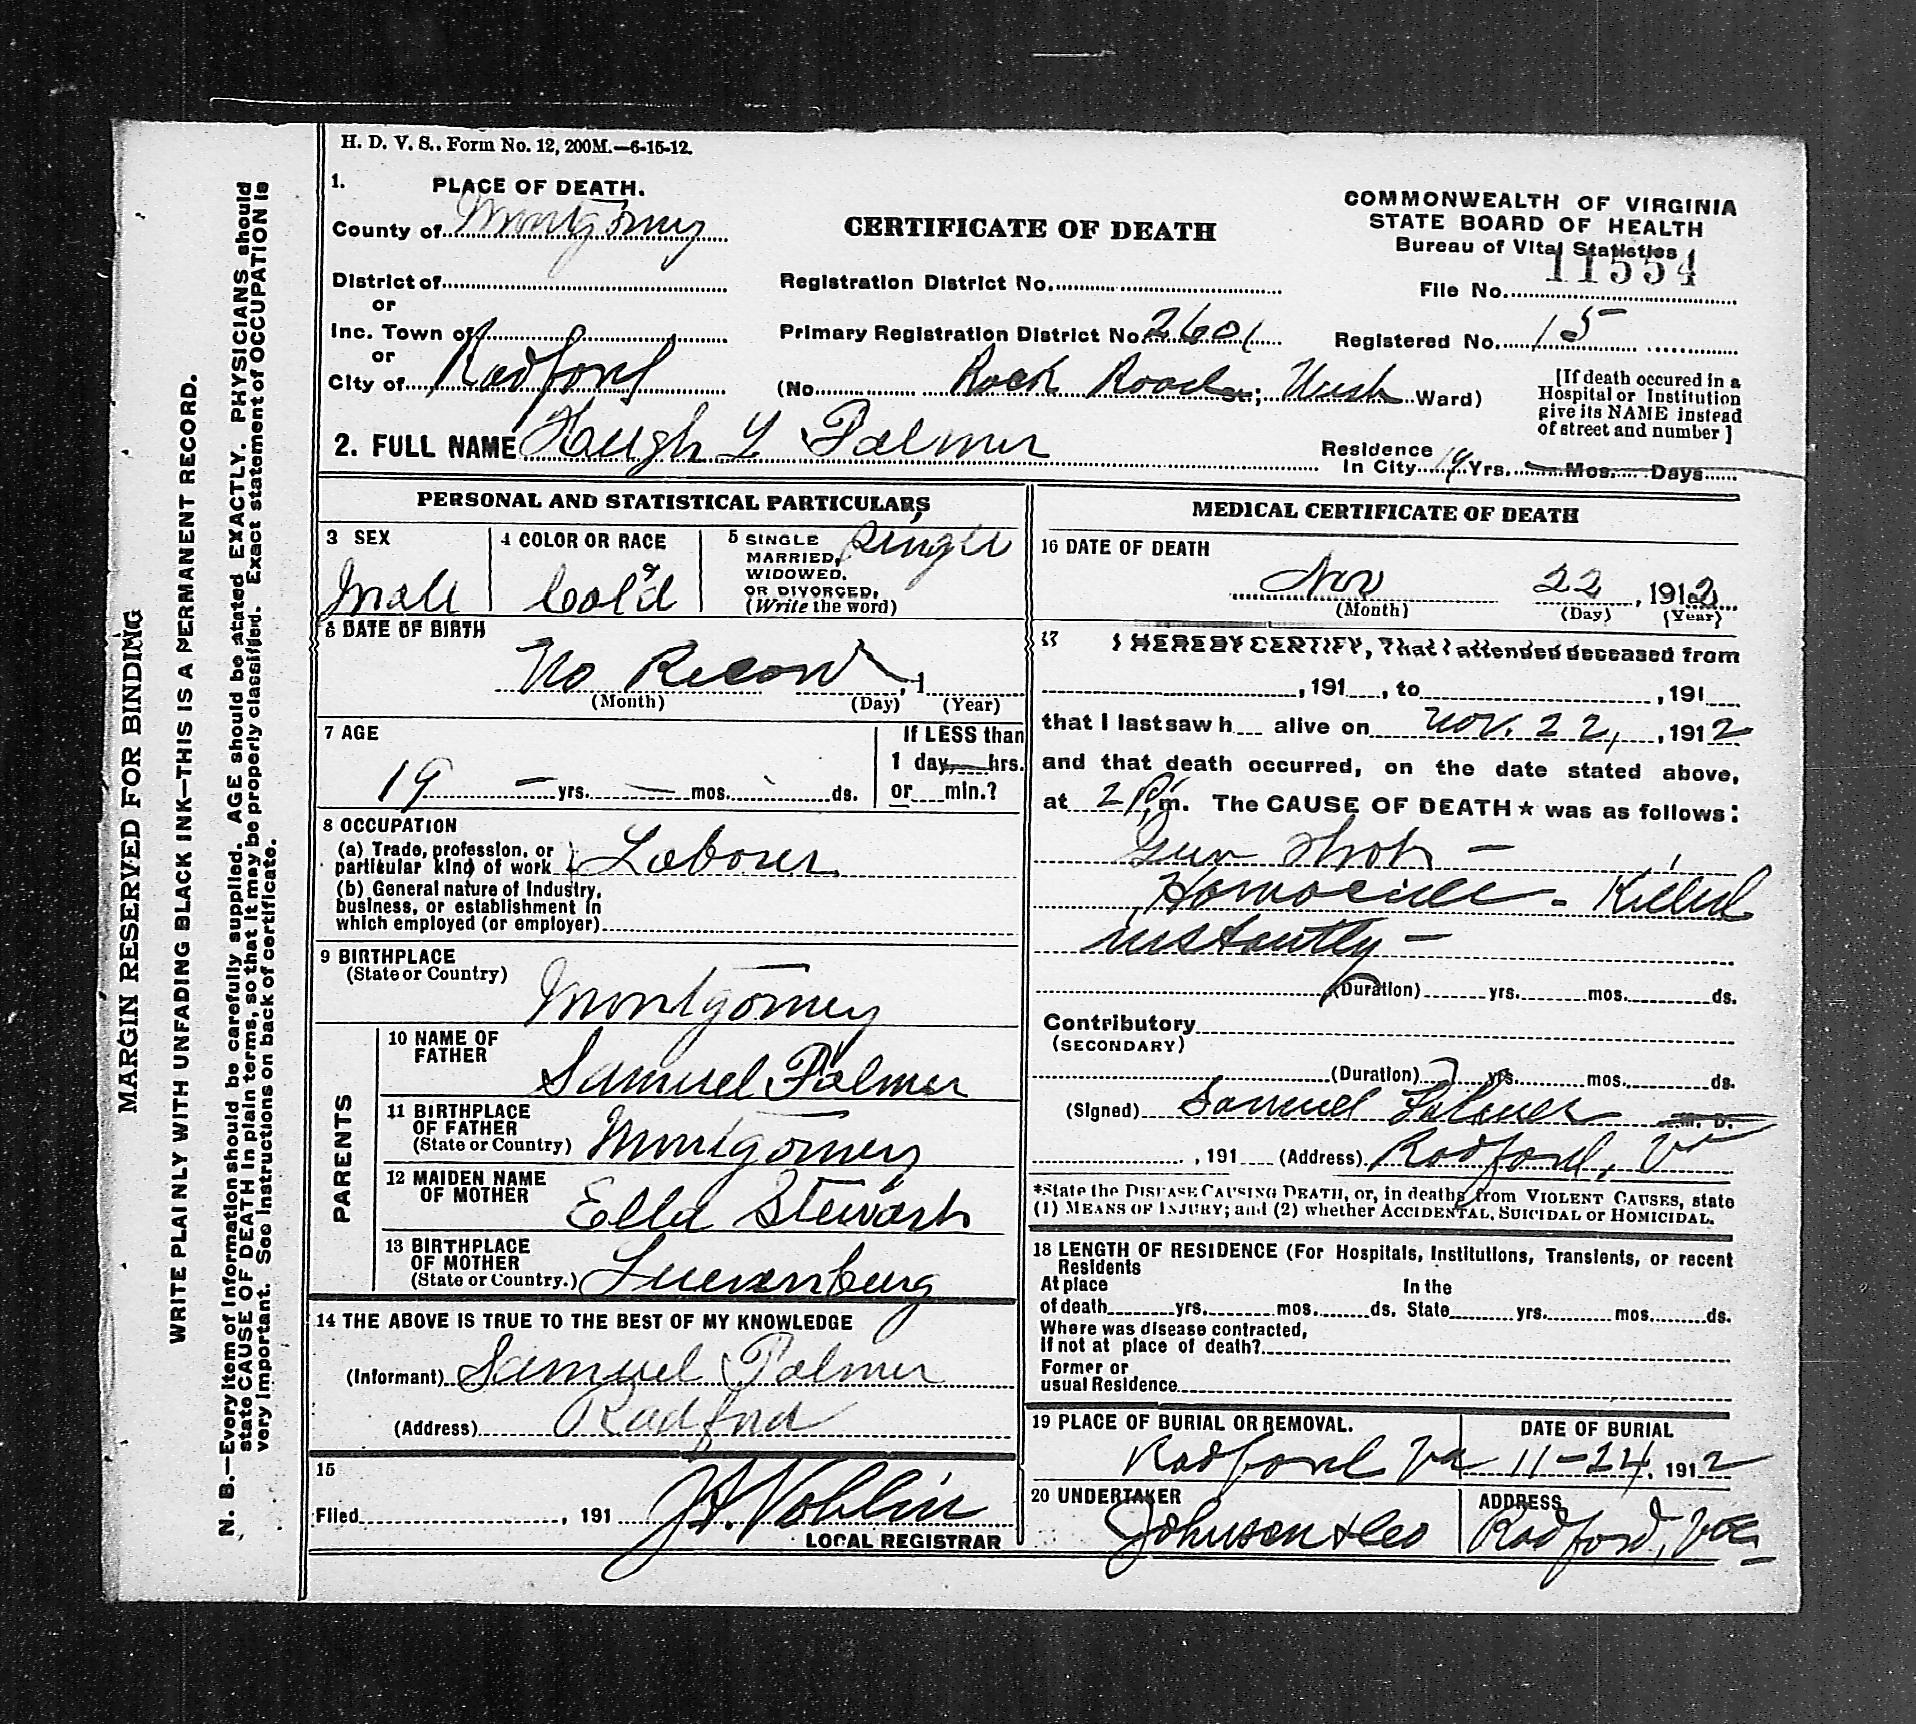 H. D. V. S.. Form No. 12, 200M.—6-15-12.
1. PLACE OF DEATH.
County of Montgomery
District of
or
Inc. Town of
or
City of Radford
CERTIFICATE OF DEATH
Registration District No.
Primary Registration District No. 2601
(No. Rock Road St.; West Ward)
COMMONWEALTH OF VIRGINIA
STATE BOARD OF HEALTH
Bureau of Vital Statistics
File No. 11554
Registered No. 15
[If death occured in a
Hospital or Institution
give its NAME instead
of street and number]
2. FULL NAME Hugh L Palmer
Residence
In City 19 Yrs. Mos. Days
PERSONAL AND STATISTICAL PARTICULARS
3 SEX
Male
4 COLOR OR RACE
Col'd
5 SINGLE
MARRIED,
WIDOWED.
OR DIVORCED,
(Write the word)
Single
6 DATE OF BIRTH
No Record , 1
(Month) (Day) (Year)
7 AGE
19 yrs. mos. ds.
If LESS than
1 day, hrs.
or min.?
8 OCCUPATION
(a) Trade, profession, or
particular kind of work Laborer
(b) General nature of Industry,
business, or establishment in
which employed (or employer)
9 BIRTHPLACE
(State or Country)
Montgomery
PARENTS
10 NAME OF
FATHER
Samuel Palmer
11 BIRTHPLACE
OF FATHER
(State or Country) Montgomery
12 MAIDEN NAME
OF MOTHER
Ella Stewart
13 BIRTHPLACE
OF MOTHER
(State or Country.)
14 THE ABOVE IS TRUE TO THE BEST OF MY KNOWLEDGE
(Informant) Samuel Palmer
(Address) Radford
15
Filed , 191
LOCAL REGISTRAR
MEDICAL CERTIFICATE OF DEATH
16 DATE OF DEATH
Nov 22, 1912
(Month) (Day) (Year)
17 I HEREBY CERTIFY, That I attended deceased from
, 191 , to , 191
that I last saw h alive on Nov. 22, , 1912
and that death occurred, on the date stated above,
at 2 P. m. The CAUSE OF DEATH* was as follows:
Gun Shot —
Homocide - Killed
instantly —
(Duration) yrs. mos. ds.
Contributory
(SECONDARY)
(Duration) yrs. mos. ds.
(Signed) Samuel Palmer M. D.
, 191 (Address) Radford, Va
*State the DISEASE CAUSING DEATH, or, in deaths from VIOLENT CAUSES, state
(1) MEANS OF INJURY; and (2) whether ACCIDENTAL, SUICIDAL or HOMICIDAL.
18 LENGTH OF RESIDENCE (For Hospitals, Institutions, Transients, or recent
Residents
At place In the
of death yrs. mos. ds. State yrs. mos. ds.
Where was disease contracted,
If not at place of death?
Former or
usual Residence
19 PLACE OF BURIAL OR REMOVAL.
Radford Va
DATE OF BURIAL
11-24, 1912
20 UNDERTAKER
Johnson & Co
ADDRESS
Radford, Va
MARGIN RESERVED FOR BINDING
WRITE PLAINLY WITH UNFADING BLACK INK—THIS IS A PERMANENT RECORD.
N. B.—Every item of information should be carefully supplied. AGE should be stated EXACTLY. PHYSICIANS should
state CAUSE OF DEATH in plain terms, so that it may be properly classified. Exact statement of OCCUPATION is
very important. See instructions on back of certificate.